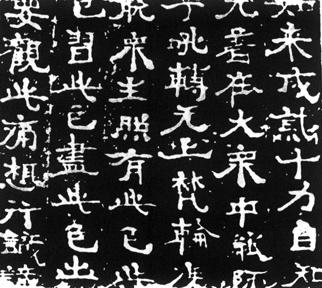 如来成就十力自知
无著在大衆中能师
子吼轉无上梵輪
衆生照有此色此
色習此色盡此色出
要觀此痛想行識